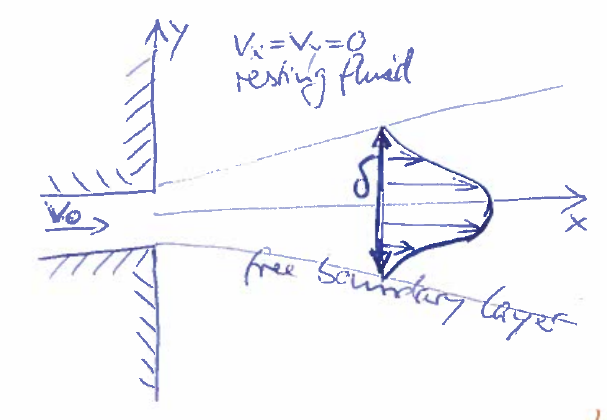 y
Vx = Vy = 0
resting fluid
δ
V0
x
free boundary layer